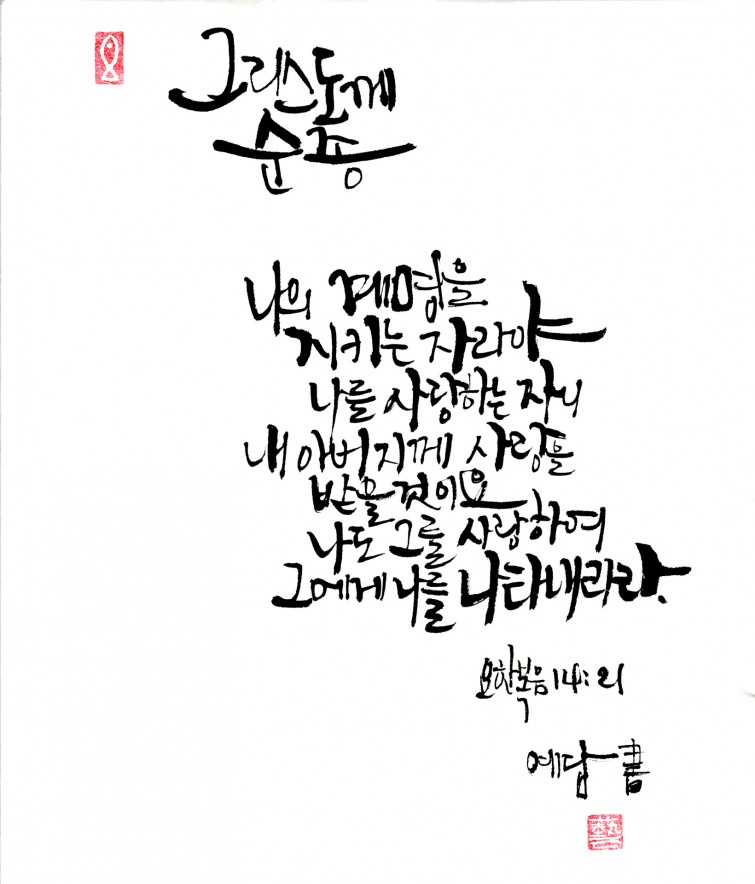 그리스도께
순종
나의 계명을
지키는 자라야
나를 사랑하는 자니
내 아버지께 사랑을
받을 것이요
나도 그를 사랑하여
그에게 나를 나타내리라.
요한복음 14:21
예담 書